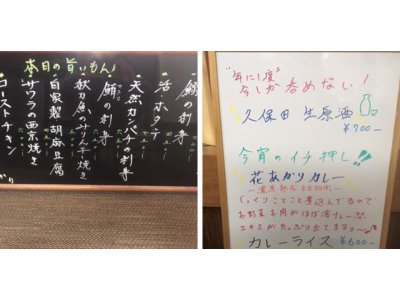 本日の旨いもん!
鰤の刺身
活ホタテ
天然カンパチの刺身
鯖の刺身
秋刀魚の
焼き
自家製胡麻豆腐
サワラの西京焼き
ローストチキン
"年に1度"
今しか呑めない!
久保田 生原酒
¥700-
今宵のイチ押し!!
花あかりカレー
じっくりことこと煮込んでるので
お野菜お肉がほぼ溶け
エキスがたっぷり出てます
カレーライス ¥600-